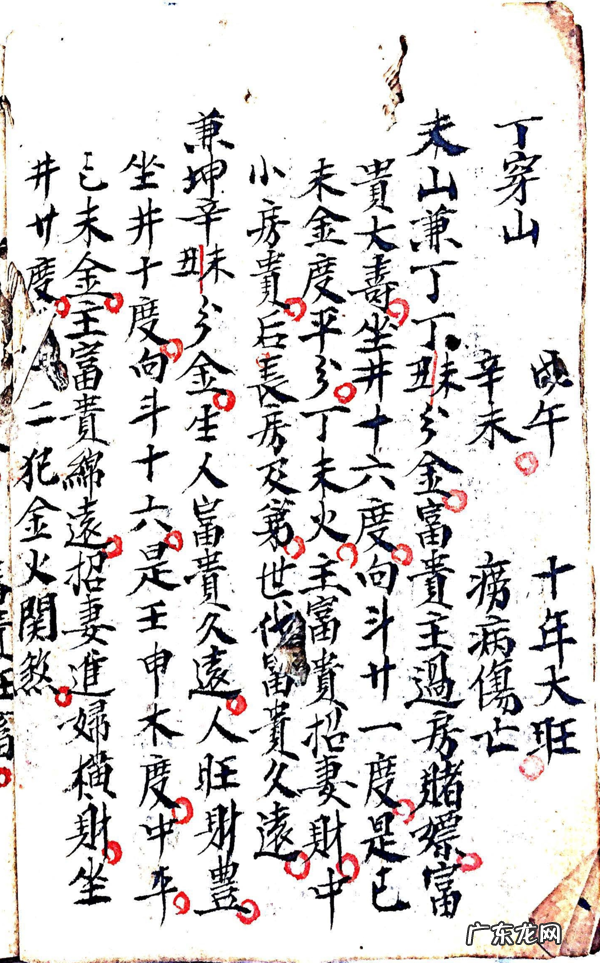 丁穿山　午　十年大旺
辛未　癆病傷亡
未山兼丁丁丑未分金富貴主過房賭嫖富
貴大壽坐井十六度向斗廿一度是己
未金度平分丁未火主富貴招妻財中
小房貴后長房及第世代富貴久遠
兼坤辛丑未分金生人富貴久遠人旺財豊
坐井十度向斗十六是壬申木度中平
己未金主富貴綿遠招妻進婦橫財坐
井廿度二犯金火関煞
广东龙网